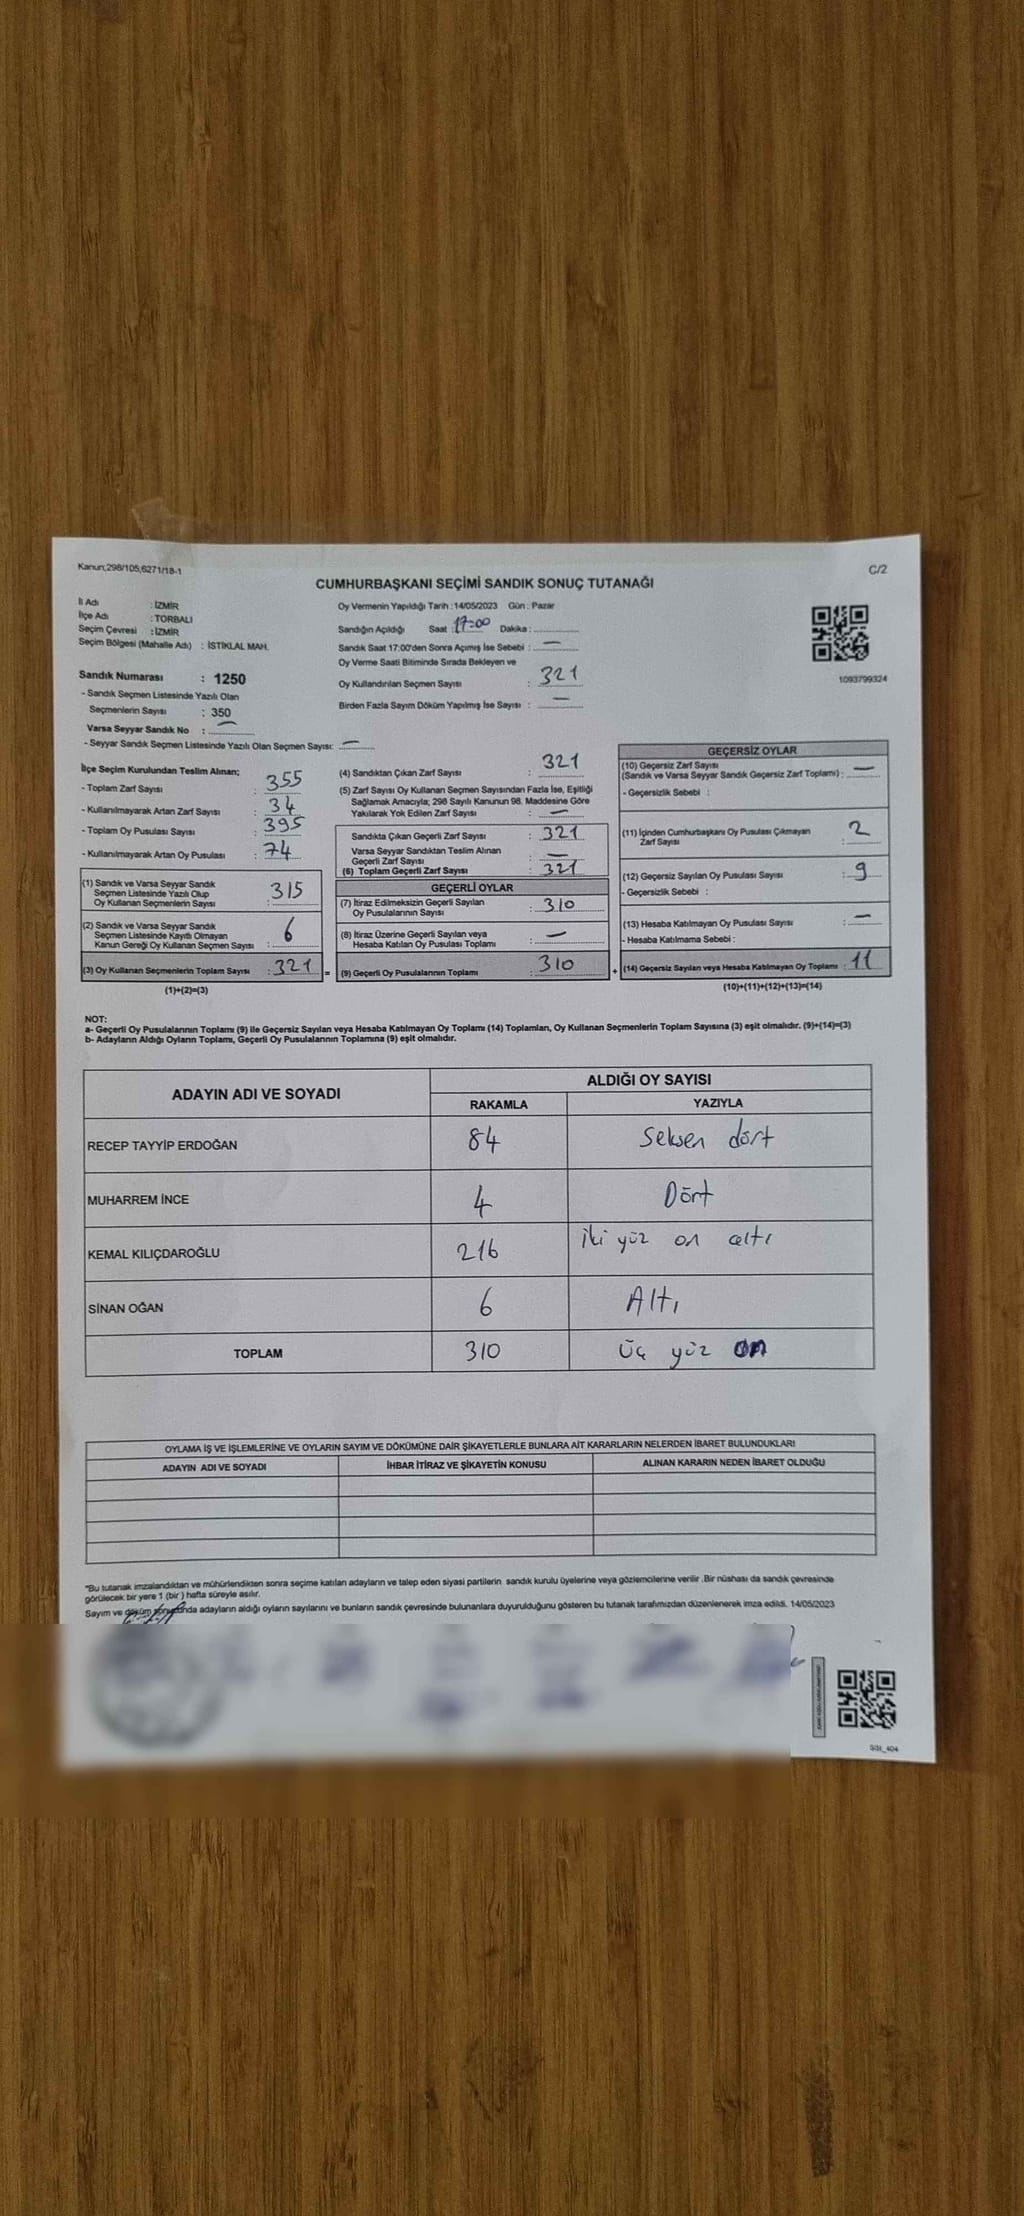 Kanun;298/105,6271/18-1
C/2
CUMHURBAŞKANI SEÇİMİ SANDIK SONUÇ TUTANAĞI
İl Adı : İZMİR
İlçe Adı : TORBALI
Seçim Çevresi : İZMİR
Seçim Bölgesi (Mahalle Adı) : İSTİKLAL MAH.
Sandık Numarası : 1250
- Sandık Seçmen Listesinde Yazılı Olan
Seçmenlerin Sayısı : 350
Varsa Seyyar Sandık No : —
- Seyyar Sandık Seçmen Listesinde Yazılı Olan Seçmen Sayısı: —
Oy Vermenin Yapıldığı Tarih : 14/05/2023 Gün : Pazar
Sandığın Açıldığı Saat : 17:00 Dakika :
Sandık Saat 17:00'den Sonra Açımış İse Sebebi : —
Oy Verme Saati Bitiminde Sırada Bekleyen ve
Oy Kullandırılan Seçmen Sayısı : 321
Birden Fazla Sayım Döküm Yapılmış İse Sayısı : —
1093799324
İlçe Seçim Kurulundan Teslim Alınan;
- Toplam Zarf Sayısı : 355
- Kullanılmayarak Artan Zarf Sayısı : 34
- Toplam Oy Pusulası Sayısı : 395
- Kullanılmayarak Artan Oy Pusulası : 74
(1) Sandık ve Varsa Seyyar Sandık
Seçmen Listesinde Yazılı Olup
Oy Kullanan Seçmenlerin Sayısı : 315
(2) Sandık ve Varsa Seyyar Sandık
Seçmen Listesinde Kayıtlı Olmayan
Kanun Gereği Oy Kullanan Seçmen Sayısı : 6
(3) Oy Kullanan Seçmenlerin Toplam Sayısı : 321 =
(1)+(2)=(3)
(4) Sandıktan Çıkan Zarf Sayısı : 321
(5) Zarf Sayısı Oy Kullanan Seçmen Sayısından Fazla İse, Eşitliği
Sağlamak Amacıyla; 298 Sayılı Kanunun 98. Maddesine Göre
Yakılarak Yok Edilen Zarf Sayısı : —
Sandıkta Çıkan Geçerli Zarf Sayısı : 321
Varsa Seyyar Sandıktan Teslim Alınan
Geçerli Zarf Sayısı : —
(6) Toplam Geçerli Zarf Sayısı : 321
GEÇERLİ OYLAR
(7) İtiraz Edilmeksizin Geçerli Sayılan
Oy Pusulalarının Sayısı : 310
(8) İtiraz Üzerine Geçerli Sayılan veya
Hesaba Katılan Oy Pusulası Toplamı : —
(9) Geçerli Oy Pusulalarının Toplamı : 310 +
GEÇERSİZ OYLAR
(10) Geçersiz Zarf Sayısı
(Sandık ve Varsa Seyyar Sandık Geçersiz Zarf Toplamı) : —
- Geçersizlik Sebebi :
(11) İçinden Cumhurbaşkanı Oy Pusulası Çıkmayan
Zarf Sayısı : 2
(12) Geçersiz Sayılan Oy Pusulası Sayısı : 9
- Geçersizlik Sebebi :
(13) Hesaba Katılmayan Oy Pusulası Sayısı : —
- Hesaba Katılmama Sebebi :
(14) Geçersiz Sayılan veya Hesaba Katılmayan Oy Toplamı : 11
(10)+(11)+(12)+(13)=(14)
NOT:
a- Geçerli Oy Pusulalarının Toplamı (9) ile Geçersiz Sayılan veya Hesaba Katılmayan Oy Toplamı (14) Toplamları, Oy Kullanan Seçmenlerin Toplam Sayısına (3) eşit olmalıdır. (9)+(14)=(3)
b- Adayların Aldığı Oyların Toplamı, Geçerli Oy Pusulalarının Toplamına (9) eşit olmalıdır.
ADAYIN ADI VE SOYADI
ALDIĞI OY SAYISI
RAKAMLA YAZIYLA
RECEP TAYYİP ERDOĞAN 84 Seksen dört
MUHARREM İNCE 4 Dört
KEMAL KILIÇDAROĞLU 216 İki yüz on altı
SİNAN OĞAN 6 Altı
TOPLAM 310 Üç yüz on
OYLAMA İŞ VE İŞLEMLERİNE VE OYLARIN SAYIM VE DÖKÜMÜNE DAİR ŞİKAYETLERLE BUNLARA AİT KARARLARIN NELERDEN İBARET BULUNDUKLARI
ADAYIN ADI VE SOYADI İHBAR İTİRAZ VE ŞİKAYETİN KONUSU ALINAN KARARIN NEDEN İBARET OLDUĞU
*Bu tutanak imzalandıktan ve mühürlendikten sonra seçime katılan adayların ve talep eden siyasi partilerin sandık kurulu üyelerine veya gözlemcilerine verilir .Bir nüshası da sandık çevresinde
görülecek bir yere 1 (bir) hafta süreyle asılır.
Sayım ve döküm sonucunda adayların aldığı oyların sayılarını ve bunların sandık çevresinde bulunanlara duyurulduğunu gösteren bu tutanak tarafımızdan düzenlenerek imza edildi. 14/05/2023